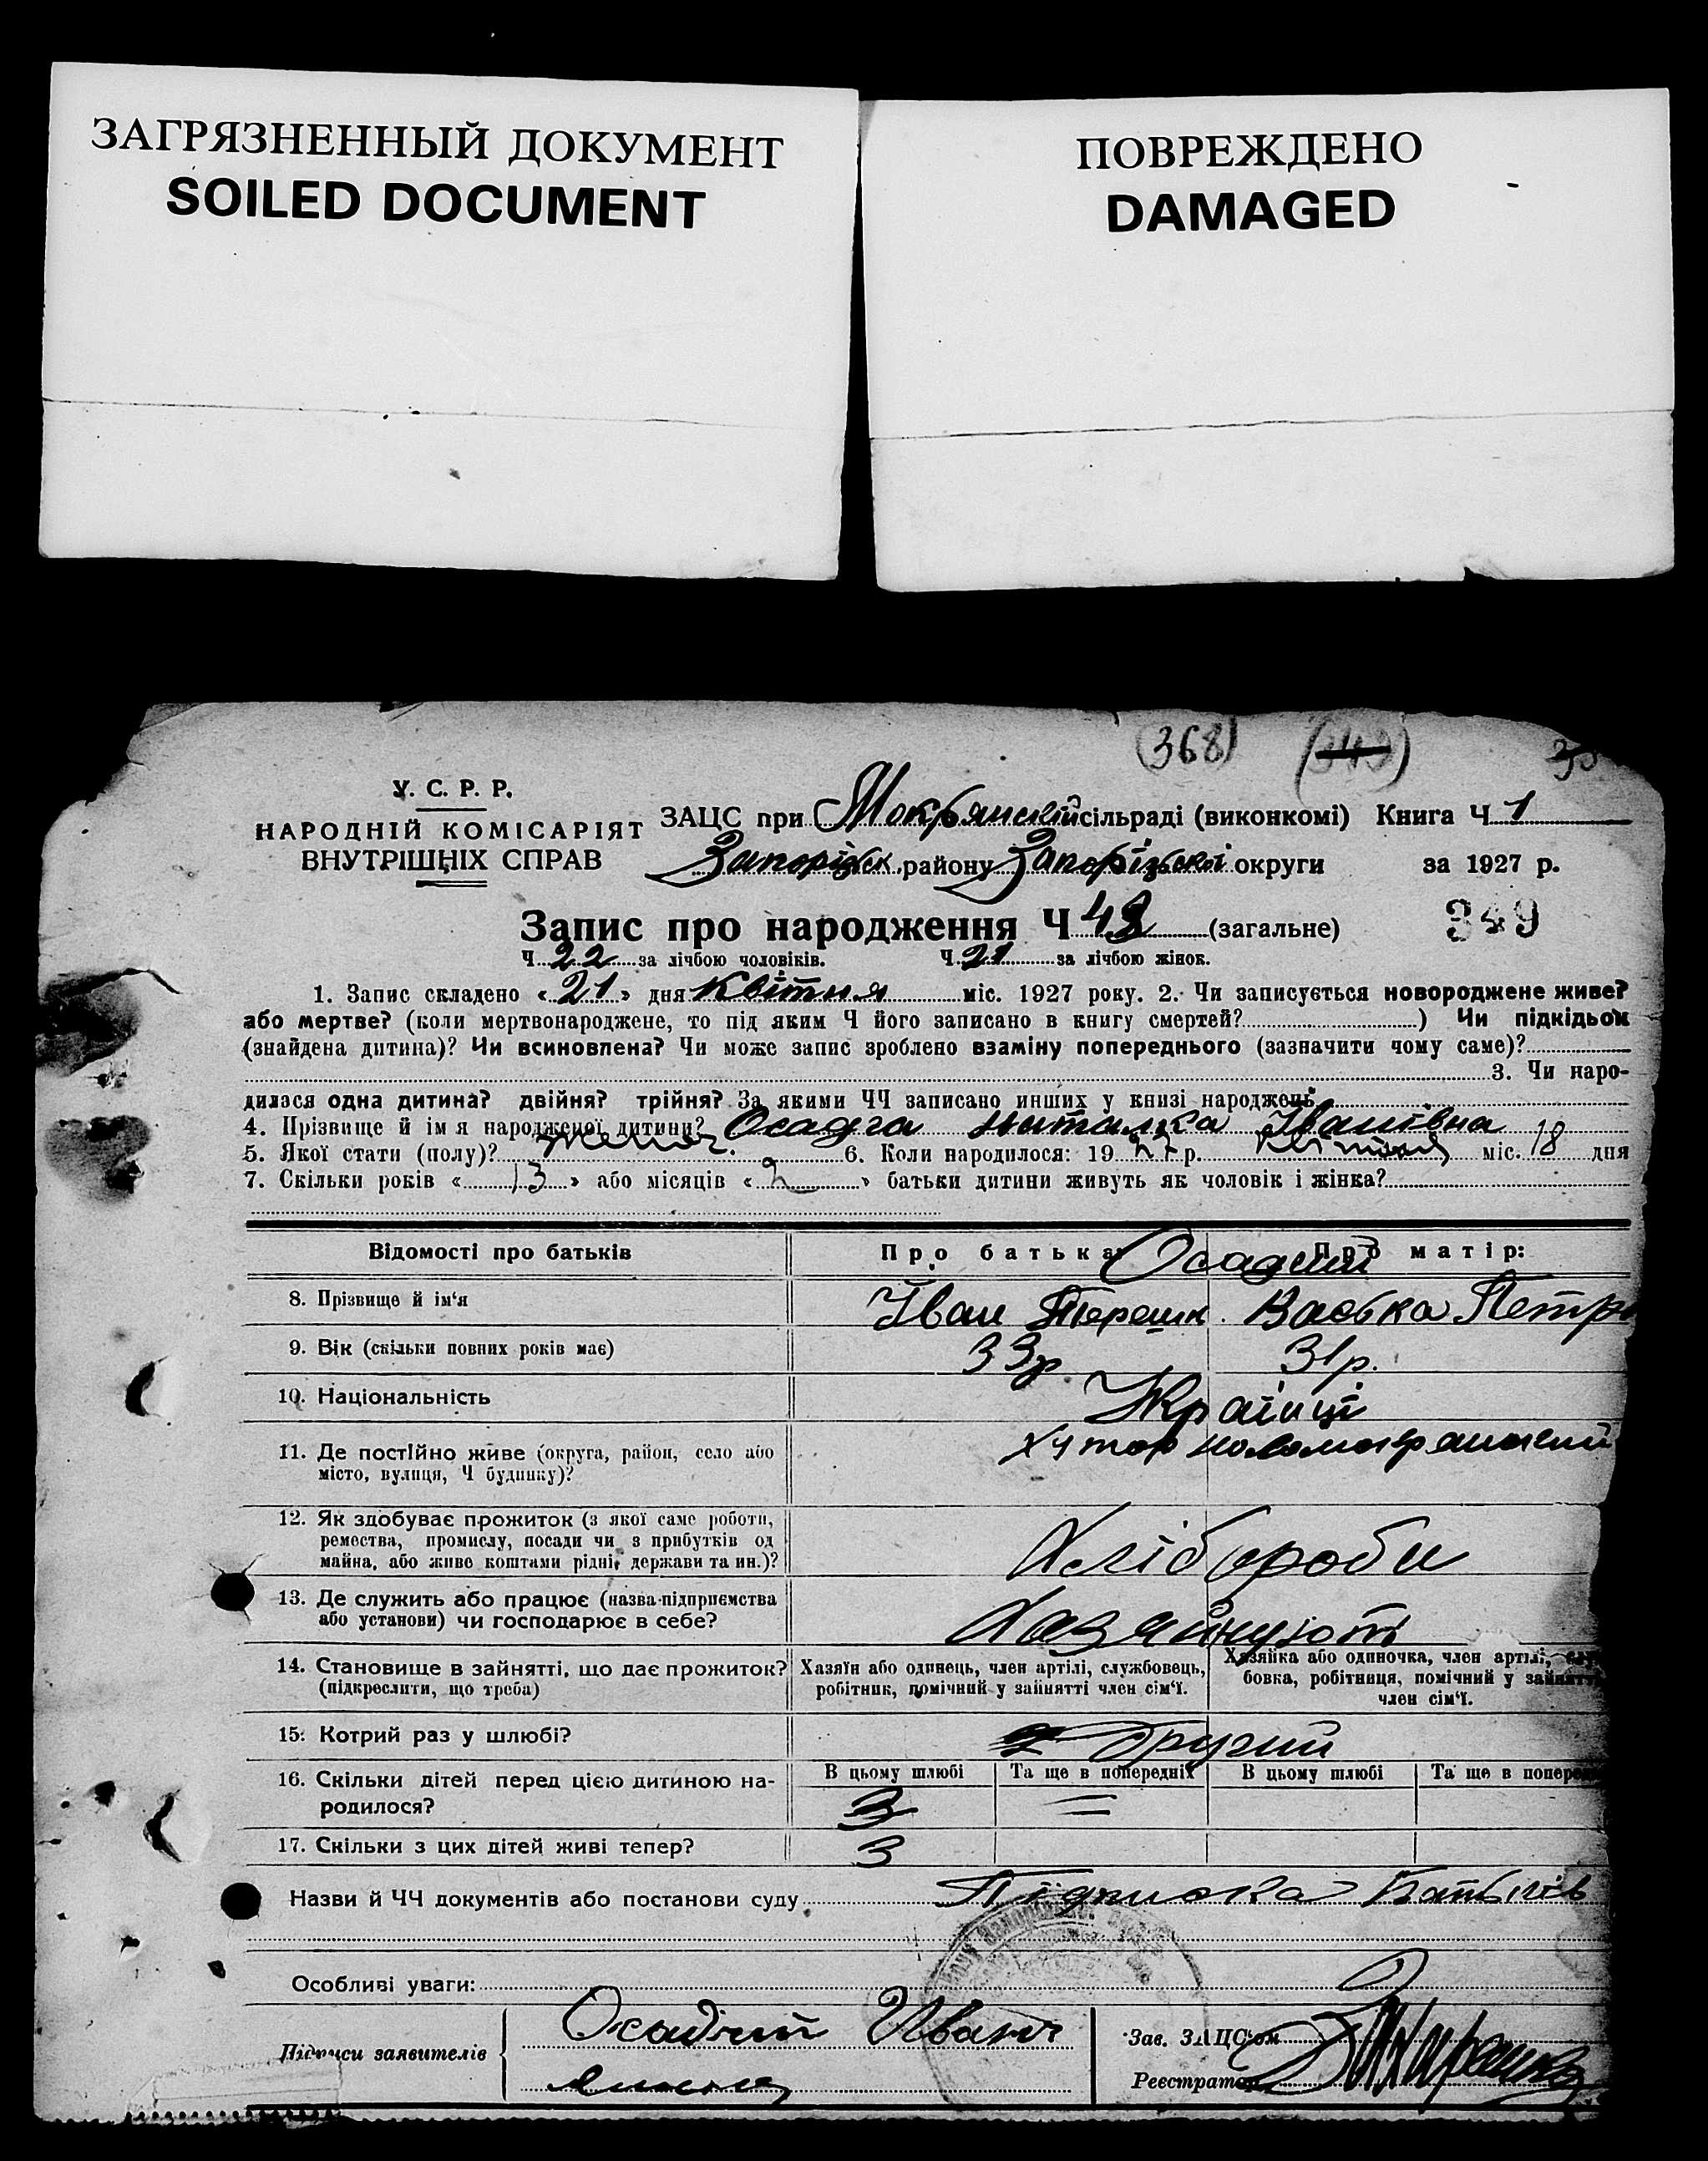 ЗАГРЯЗНЕННЫЙ ДОКУМЕНТ
SOILED DOCUMENT
ПОВРЕЖДЕНО
DAMAGED
(368) (349)
У. С. Р. Р.
НАРОДНІЙ КОМІСАРІЯТ
ВНУТРІШНІХ СПРАВ
ЗАЦС при Мокрянській сільраді (виконкомі) Книга Ч 1
Запоріжск. району Запорізької округи за 1927 р.
Запис про народження Ч 43 (загальне) 349
Ч 22 за лічбою чоловіків. Ч 21 за лічбою жінок.
1. Запис складено « 21 » дня Квітня міс. 1927 року. 2. Чи записується новороджене живе?
або мертве? (коли мертвонароджене, то під яким Ч його записано в книгу смертей? ) Чи підкідьок
(знайдена дитина)? Чи всиновлена? Чи може запис зроблено взаміну попереднього (зазначити чому саме)?
3. Чи наро-
дилася одна дитина? двійня? трійня? За якими ЧЧ записано инших у книзі народжень
4. Прізвище й ім я народженої дитини? Осадча Наталка Іванівна
5. Якої стати (полу)? жіноч. 6. Коли народилося: 1927 р. Квітня міс. 18 дня
7. Скільки років « 13 » або місяців « 2 » батьки дитини живуть як чоловік і жінка?
Відомості про батьків Про батька: Осадчий Про матір:
8. Прізвище й ім'я Іван Терешк. Васька Петр
9. Вік (скільки повних років має) 33р 31р.
10. Національність Українці
11. Де постійно живе (округа, район, село або Хутор
місто, вулиця, Ч будинку)?
12. Як здобуває прожиток (з якої саме роботи,
ремества, промислу, посади чи з прибутків од Хлібороби
майна, або живе коштами рідні, держави та ин.)?
13. Де служить або працює (назва підприємства
або установи) чи господарює в себе? Хазяйнують
14. Становище в зайнятті, що дає прожиток? Хазяїн або одинець, член артілі, службовець, Хазяйка або одиночка, член артілі,
(підкреслити, що треба) робітник, помічний у зайнятті член сім'ї. бовка, робітниця, помічний у зайнятті
член сім'ї.
15. Котрий раз у шлюбі? другий
16. Скільки дітей перед цією дитиною на- В цьому шлюбі Та ще в попередніх В цьому шлюбі Та ще в попере
родилося? 3 =
17. Скільки з цих дітей живі тепер? 3
Назви й ЧЧ документів або постанови суду Підписка Батьків
Особливі уваги:
Осадчий Иван
Підписи заявителів
Зав. ЗАЦС'ом
Реєстратор